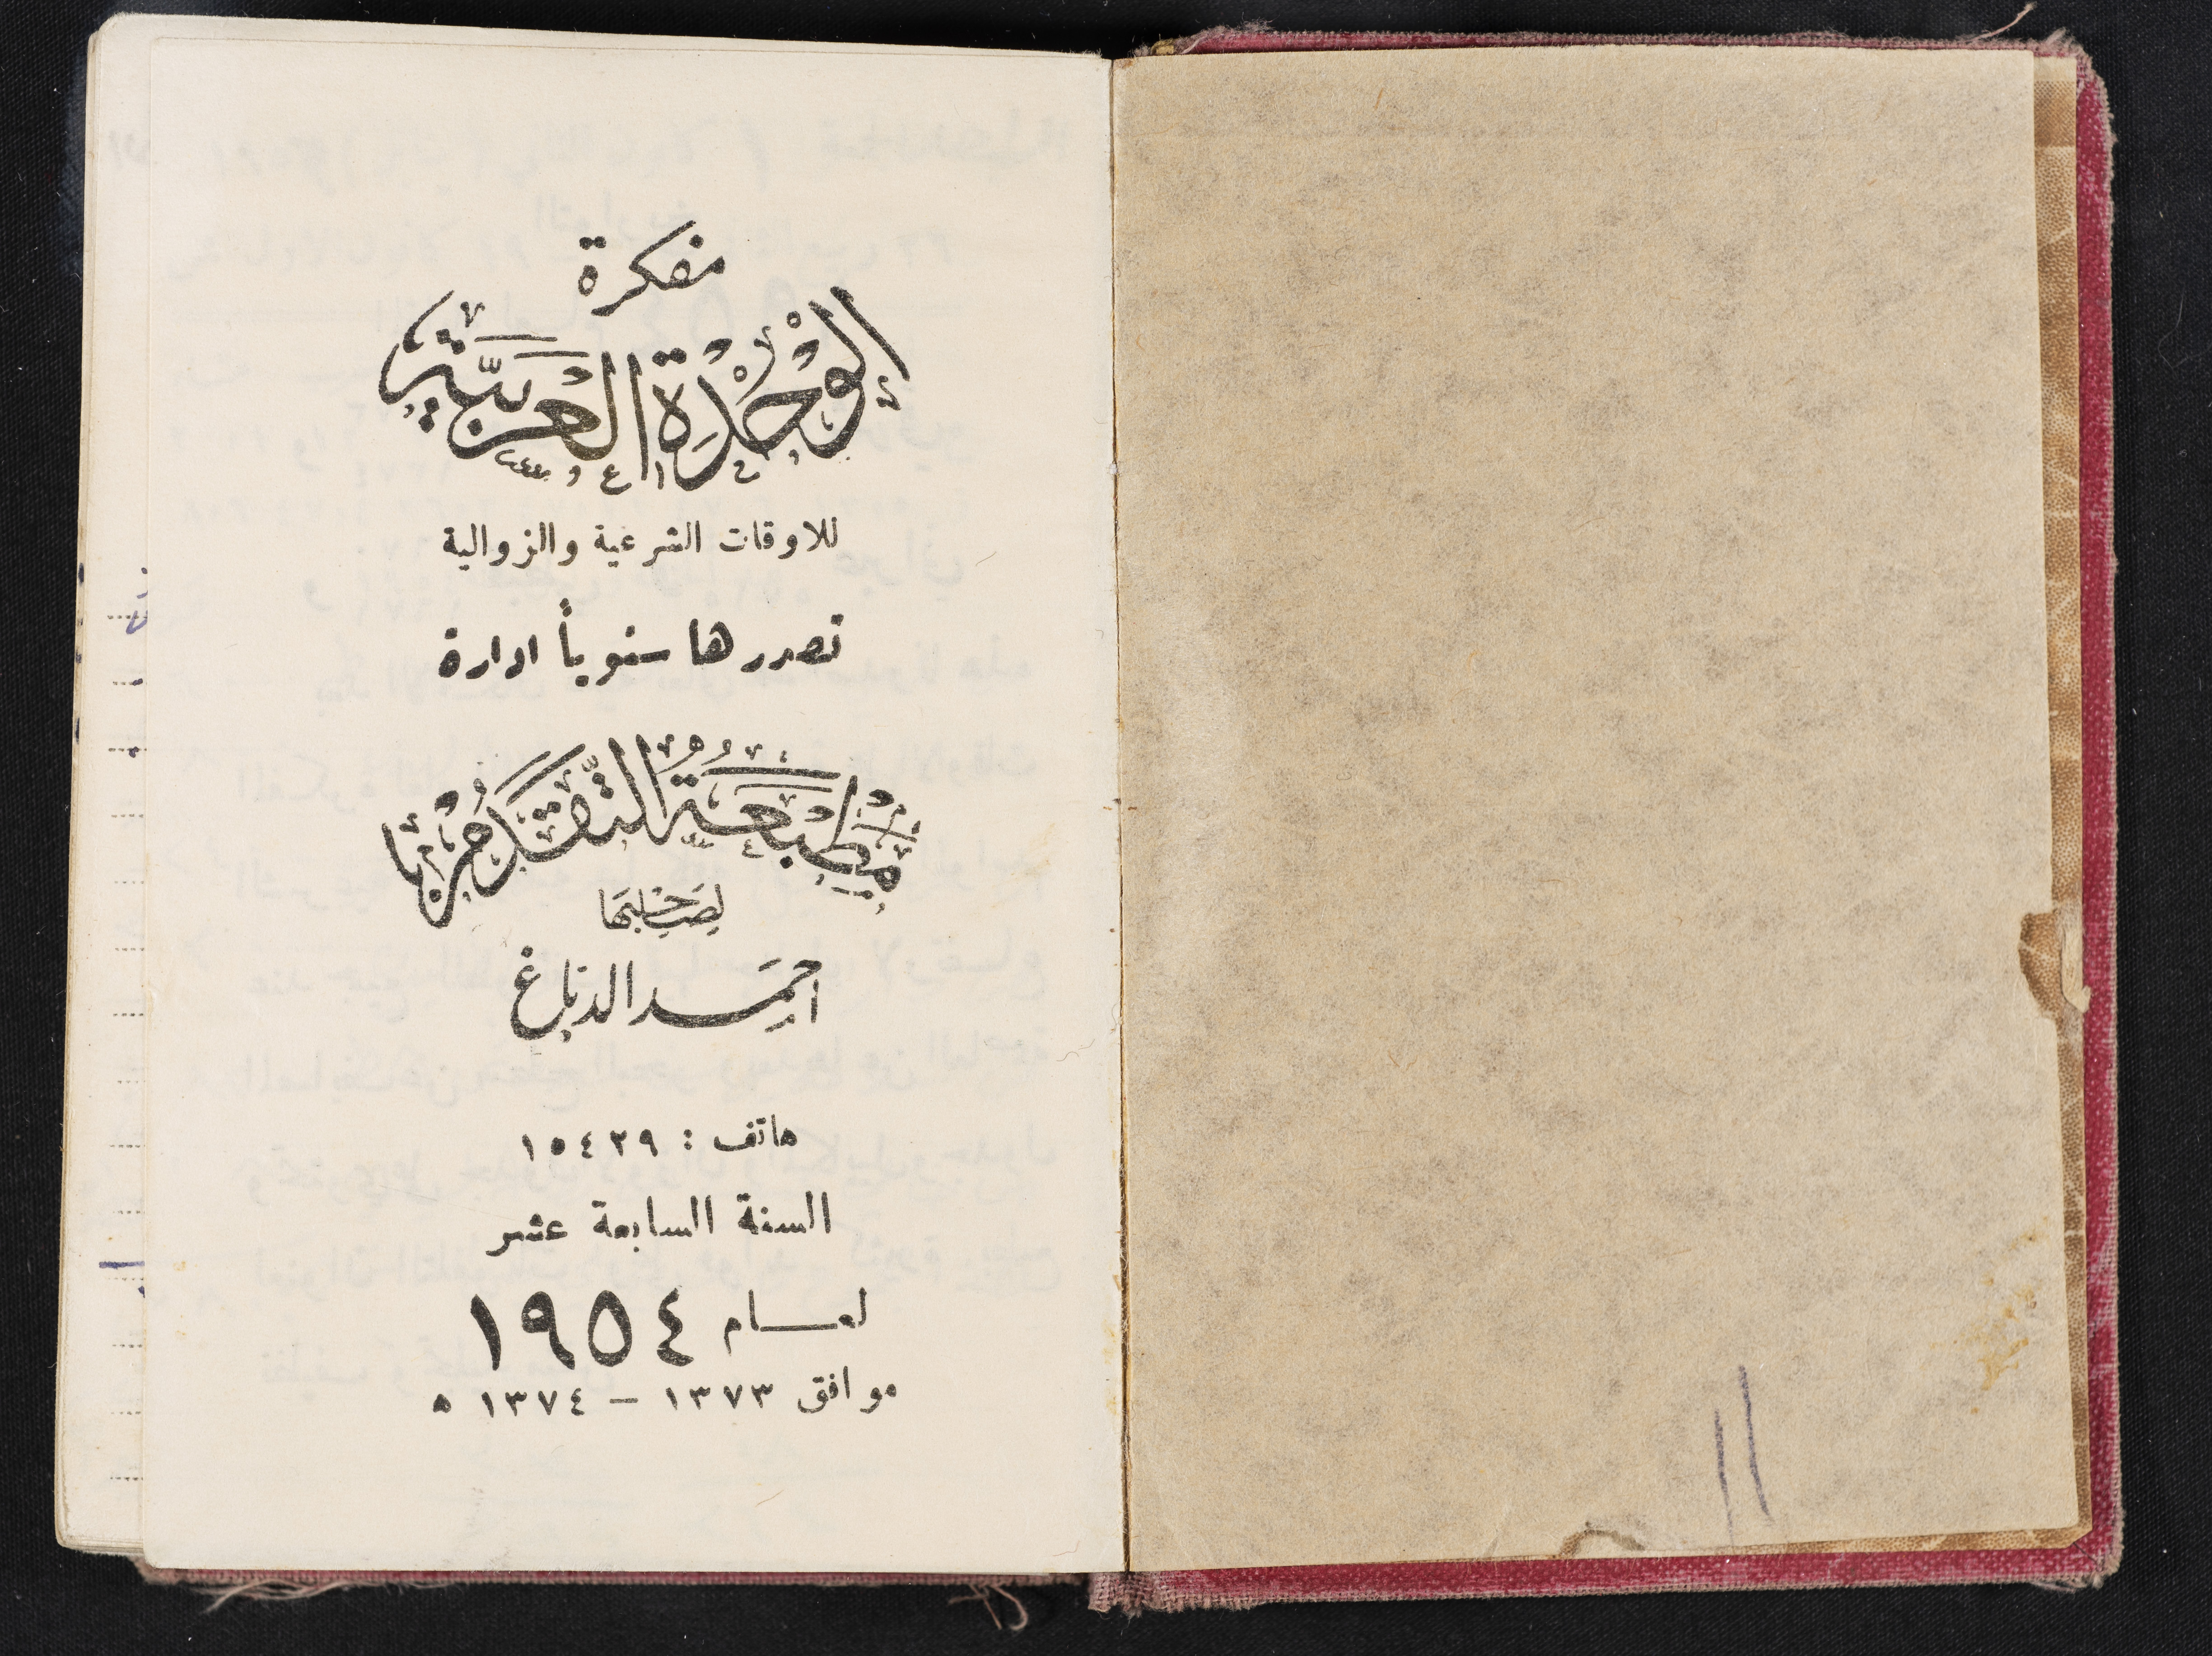 مفكرة
الوحدة العربية
للاوقات الشرعية والزوالية
تصدرها سنوياً ادارة
مطبعة التقدم
لصاحبها
احمد الدباغ
هاتف : ١٥٤٣٩
السنة السابعة عشر
لعام ١٩٥٤
موافق ١٣٧٣ – ١٣٧٤ ه